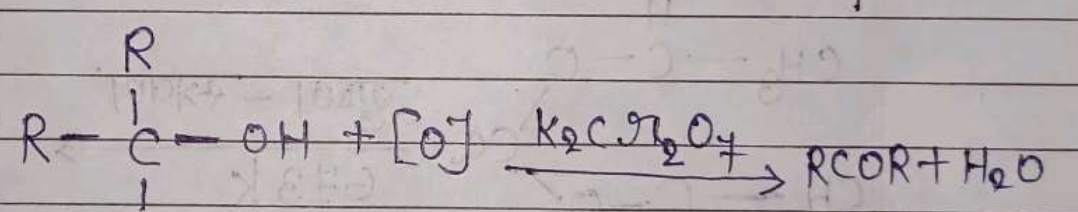 R
R-C-OH + [O] K₂Cr₂O₇ → RCOR + H₂O